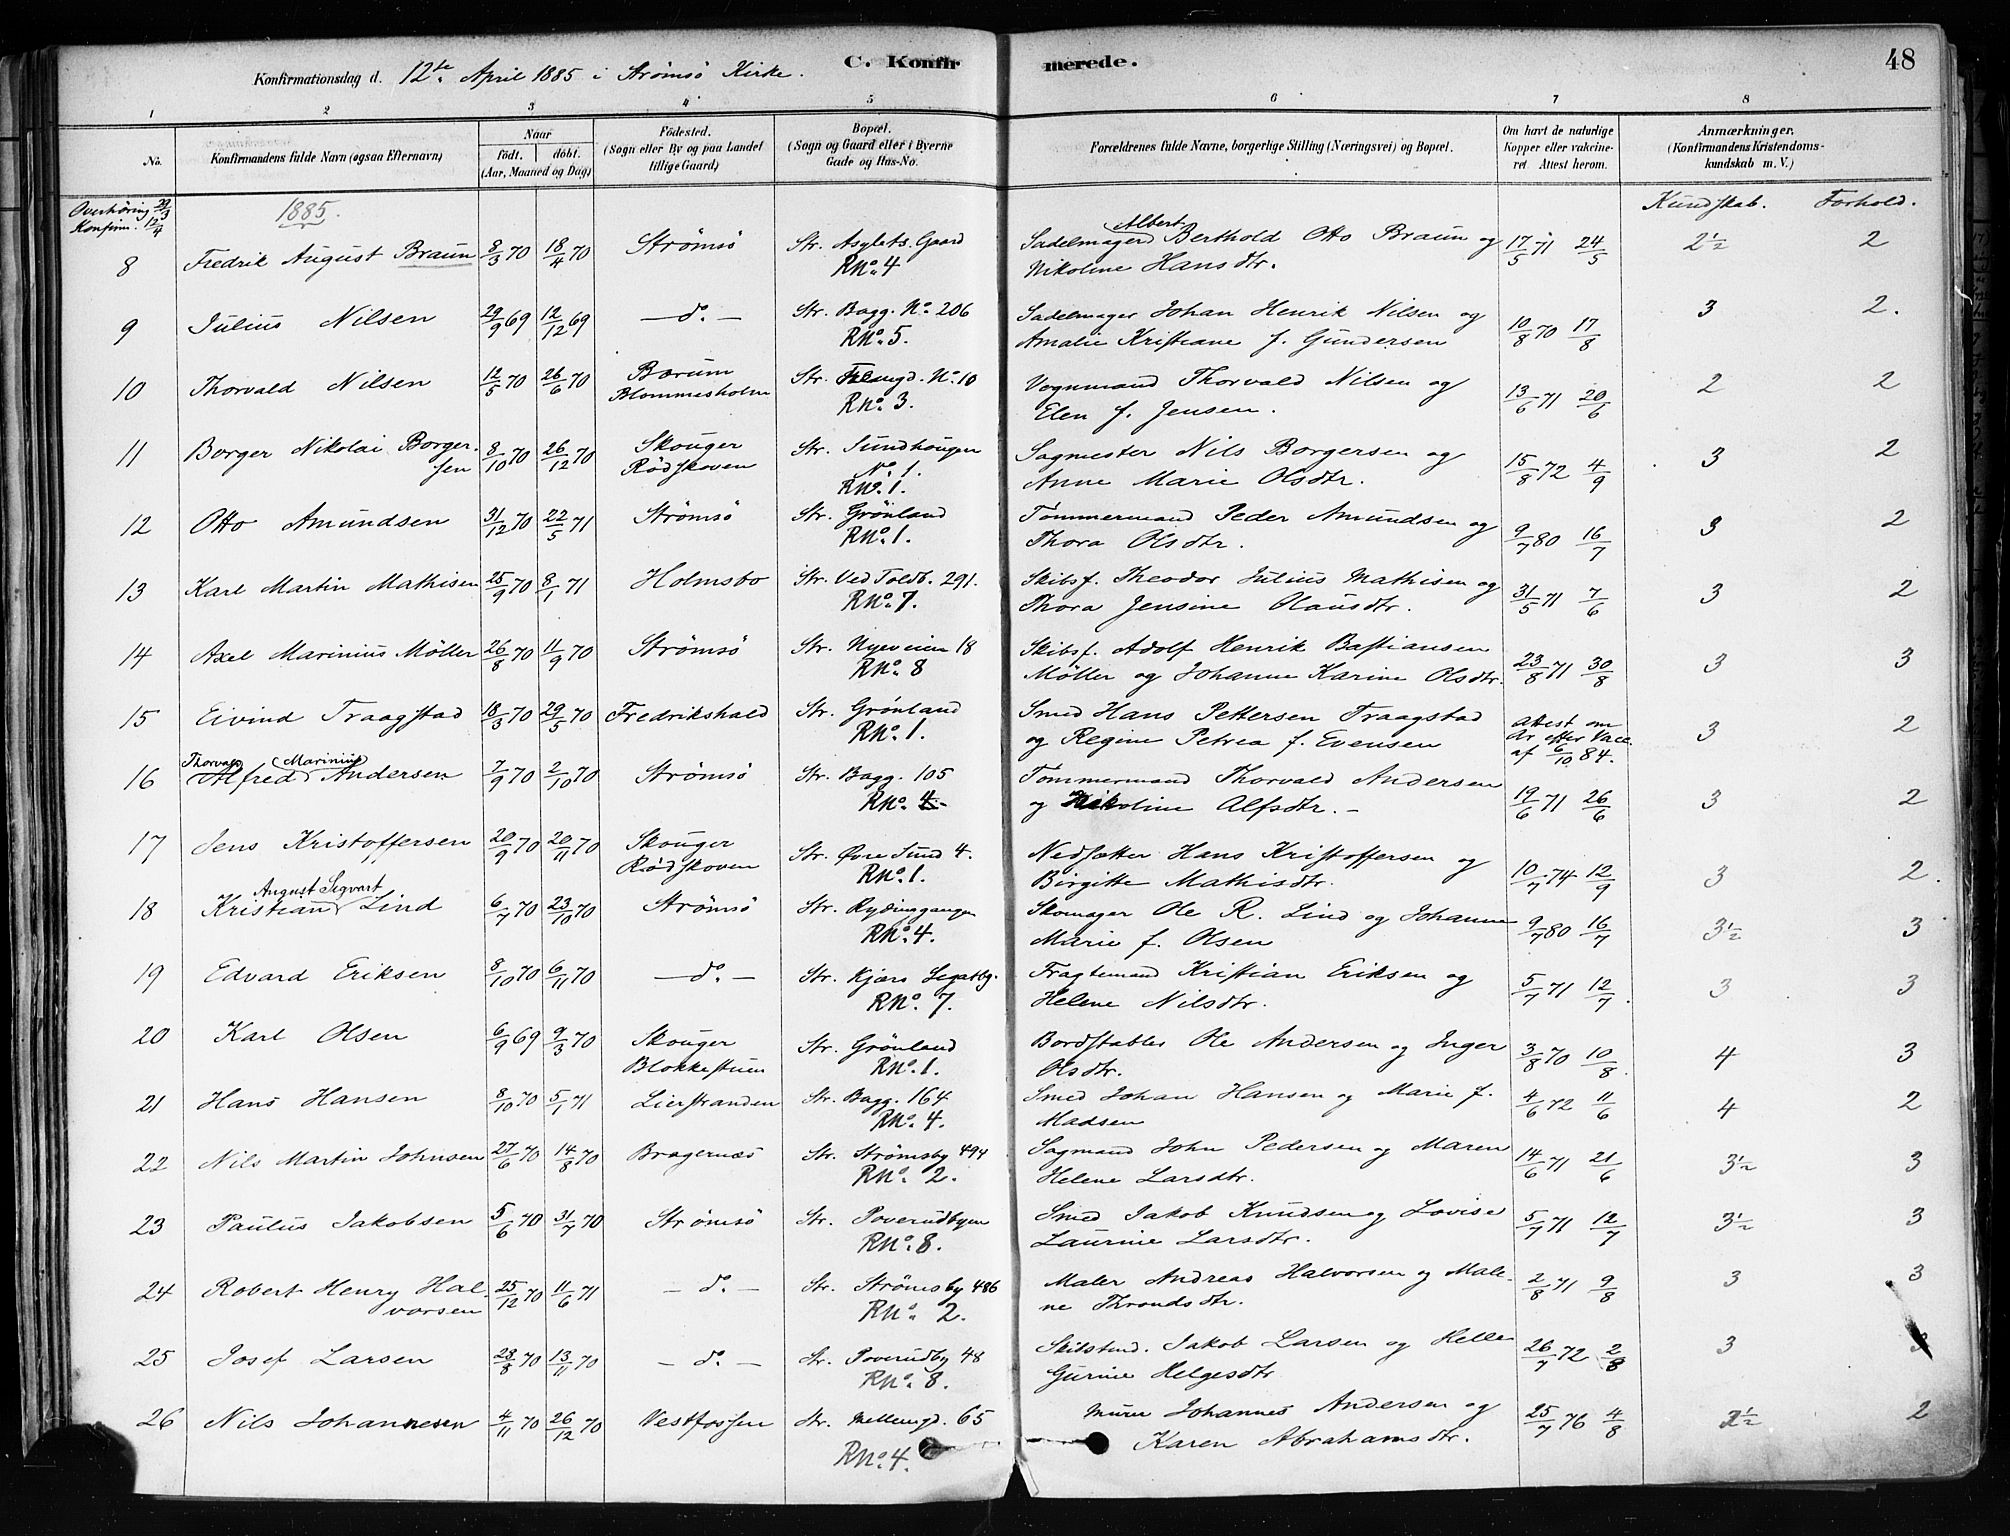 Konfirmationsdag d. 12te April 1885 i Strømsö Kirke. C. Konfirmerede. 48
1 2 3 4 5 6 7 8
No. Konfirmandens fulde Navn (ogsaa Efternavn) Naar født. døbt. (Aar, Maaned og Dag) Fødested. (Sogn eller By og paa Landet tillige Gaard) Bopæl. (Sogn og Gaard eller i Byerne Gade og Hus-No. Forældrenes fulde Navne, borgerlige Stilling (Næringsvei) og Bopæl. Om havt de naturlige Kopper eller vakcineret Attest herom. Anmærkninger. (Konfirmandens Kristendomskundskab m. V.)
Overhöring 29/3 1885. Kundskab. Forhold.
Konfirm. 12/4
8 Fredrik August Braun 8/3 70 18/4 70 Strömsö Str. Asylets Gaard Sadelmager Albert Berthold Otto Braun og 17/5 71 24/5 2½ 2
RNo. 4 Nikoline Hansdtr.
9 Julius Nilsen 29/9 69 12/12 69 — do. — Str. Bagg. No. 206 Sadelmager Johan Henrik Nilsen og 10/8 70 17/8 3 2.
RNo. 5. Amalie Kristiane f. Gundersen
10 Thorvald Nilsen 12/5 70 26/6 70 Bærum Str. No. 10 Vognmand Thorvald Nilsen og 13/6 71 20/6 2 2
Blommesholm RNo. 3. Elen f. Jensen.
11 Borger Nikolai Borger- 8/10 70 26/12 70 Skouger Str. Sundhougen Sagmester Nils Borgersen og 15/8 72 4/9 3 2
sen Rödskoven No. 1. Anne Marie Olsdtr.
RNo. 1.
12 Otto Amundsen 31/12 70 22/5 71 Strömsö Str. Grönland Tömmermand Peder Amundsen og 9/7 80 16/7 3 2
RNo. 1. Thora Olsdtr.
13 Karl Martin Mathisen 25/9 70 8/1 71 Holmsbo Str. Ved Toldb. 291. Skibsf. Theodor Julius Mathisen og 31/5 71 7/6 3 2
RNo. 7. Thora Jensine Olausdtr.
14 Axel Marinius Möller 26/8 70 11/9 70 Strömsö Str. Nyeveien 18 Skibsf. Adolf Henrik Bastiansen 23/8 71 30/8 3 3
RNo. 8 Möller og Johanne Karine Olsdtr.
15 Eivind Traagstad 18/3 70 29/5 70 Fredrikshald Str. Grönland Smed Hans Pettersen Traagstad Attest om 3 2
RNo. 1. og Regine Petrea f. Evensen Ar efter Vacc. af 6/10 84.
Thorvald Marinius
16 Alfred Andersen 7/9 70 2/10 70 Strömsö Str. Bagg. 105 Tömmermand Thorvald Andersen 19/6 71 26/6 3 2
RNo. 4- og Nikoline Alfsdtr. –
17 Jens Kristoffersen 20/9 70 20/11 70 Skouger Str. Øvre Sund 4. Nedsætter Hans Kristoffersen og 10/7 74 12/9 3 2.
Rödskoven RNo. 1. Birgitte Mathisdtr.
August Sigvart
18 Kristian Lind 6/7 70 23/10 70 Strömsö Str. Rydinggangen Skomager Ole R. Lind og Johanne 9/7 80 16/7 3½ 3
RNo. 4. Marie f. Olsen
19 Edvard Eriksen 8/10 70 6/11 70 — do. — Str. Kjærs Legatbg. Fragtemand Kristian Eriksen og 5/7 71 12/7. 3 3
RNo. 7. Helene Nilsdtr.
20 Karl Olsen 6/9 69 9/3 70 Skouger Str. Grönland Bordstabler Ole Andersen og Inger 3/8 70 10/8. 4 3
Blokkestuen RNo. 1. Olsdtr.
21 Hans Hansen 8/10 70 5/1 71 Lierstranden Str. Bagg. 164 Smed Johan Hansen og Marie f. 4/6 72 11/6 4 2
RNo. 4. Madsen
22 Nils Martin Johnsen 27/6 70 14/8 70 Bragernæs Str. Strömsby 494 Sagmand John Pedersen og Maren 14/6 71 21/6 3½ 3
RNo. 2. Helene Larsdtr.
23 Paulus Jakobsen 5/6 70 31/7 70 Strömsö Str. Poverudbyen Smed Jakob Knudsen og Lovise 5/7 71 12/7 3½ 3
RNo. 8. Laurine Larsdtr.
24 Robert Henry Hal- 25/12 70 11/6 71 — do. — Str. Strömsby 486 Maler Andreas Halvorsen og Male- 2/8 71 9/8 3 3
vorsen RNo. 2. ne Throndsdtr.
25 Josef Larsen 28/8 70 13/11 70 — do. — Str. Poverudby 48 Jakob Larsen og Helle 26/7 72 2/8 3 3
RNo. 8. Gurine Helgesdtr
26 Nils Johannesen 4/11 70 26/12 70 Vestfossen Str. Mellemgd. 65 Murer Johannes Andersen og 25/7 76 4/8 2½ 2
RNo. 4. Karen Abrahamsdtr.